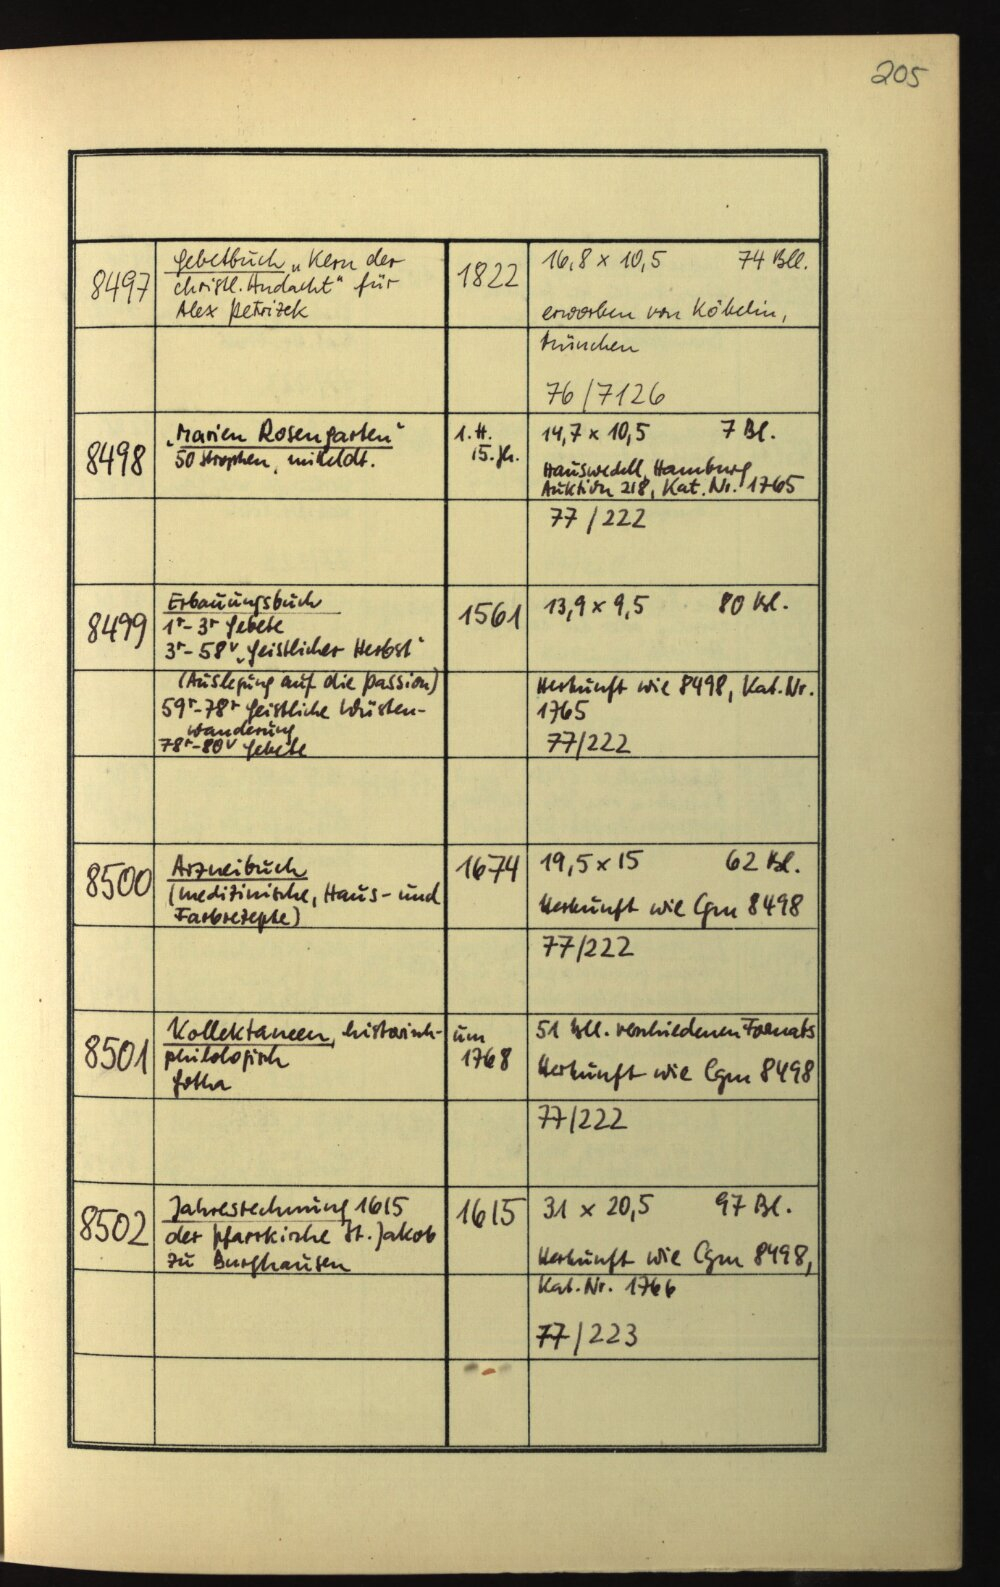 205
8497
Gebetbuch „Kern der
christl. Andacht“ für
Alex Petrizek
1822
16,8 x 10,5 74 Bll.
erworben von Köbelin,
München
76/7126
8498
„Marien Rosengarten“
50 Strophen, mitteldt.
1. H.
15. Jh.
14,7 x 10,5 7 Bl.
Hauswedell, Hamburg
Auktion 218, Kat. Nr. 1765
77/222
8499
Erbauungsbuch
1r-3r Gebete
3r-58v „Geistlicher Herbst“
(Auslegung auf die Passion)
59r-78r Geistliche Wüsten-
wanderung
78r-80v Gebete
1561
13,9 x 9,5 80 Bl.
Herkunft wie 8498, Kat. Nr.
1765
77/222
8500
Arzneibuch
(medizinische, Haus- und
Farbrezepte)
1674
19,5 x 15 62 Bl.
Herkunft wie Cgm 8498
77/222
8501
Kollektaneen, historisch-
philologisch
Gotha
um
1768
51 Bll. verschiedenen Formats
Herkunft wie Cgm 8498
77/222
8502
Jahresrechnung 1615
der Pfarrkirche St. Jakob
zu Burghausen
1615
31 x 20,5 97 Bl.
Herkunft wie Cgm 8498,
Kat. Nr. 1766
77/223